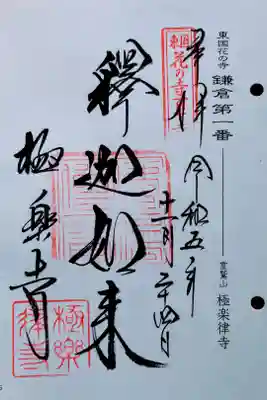 東国花の寺 鎌倉第一番
霊鷲山 極楽律寺
奉拝 令和五年
十一月二十四日
釋迦如来
極楽寺
東国
花の寺
極樂